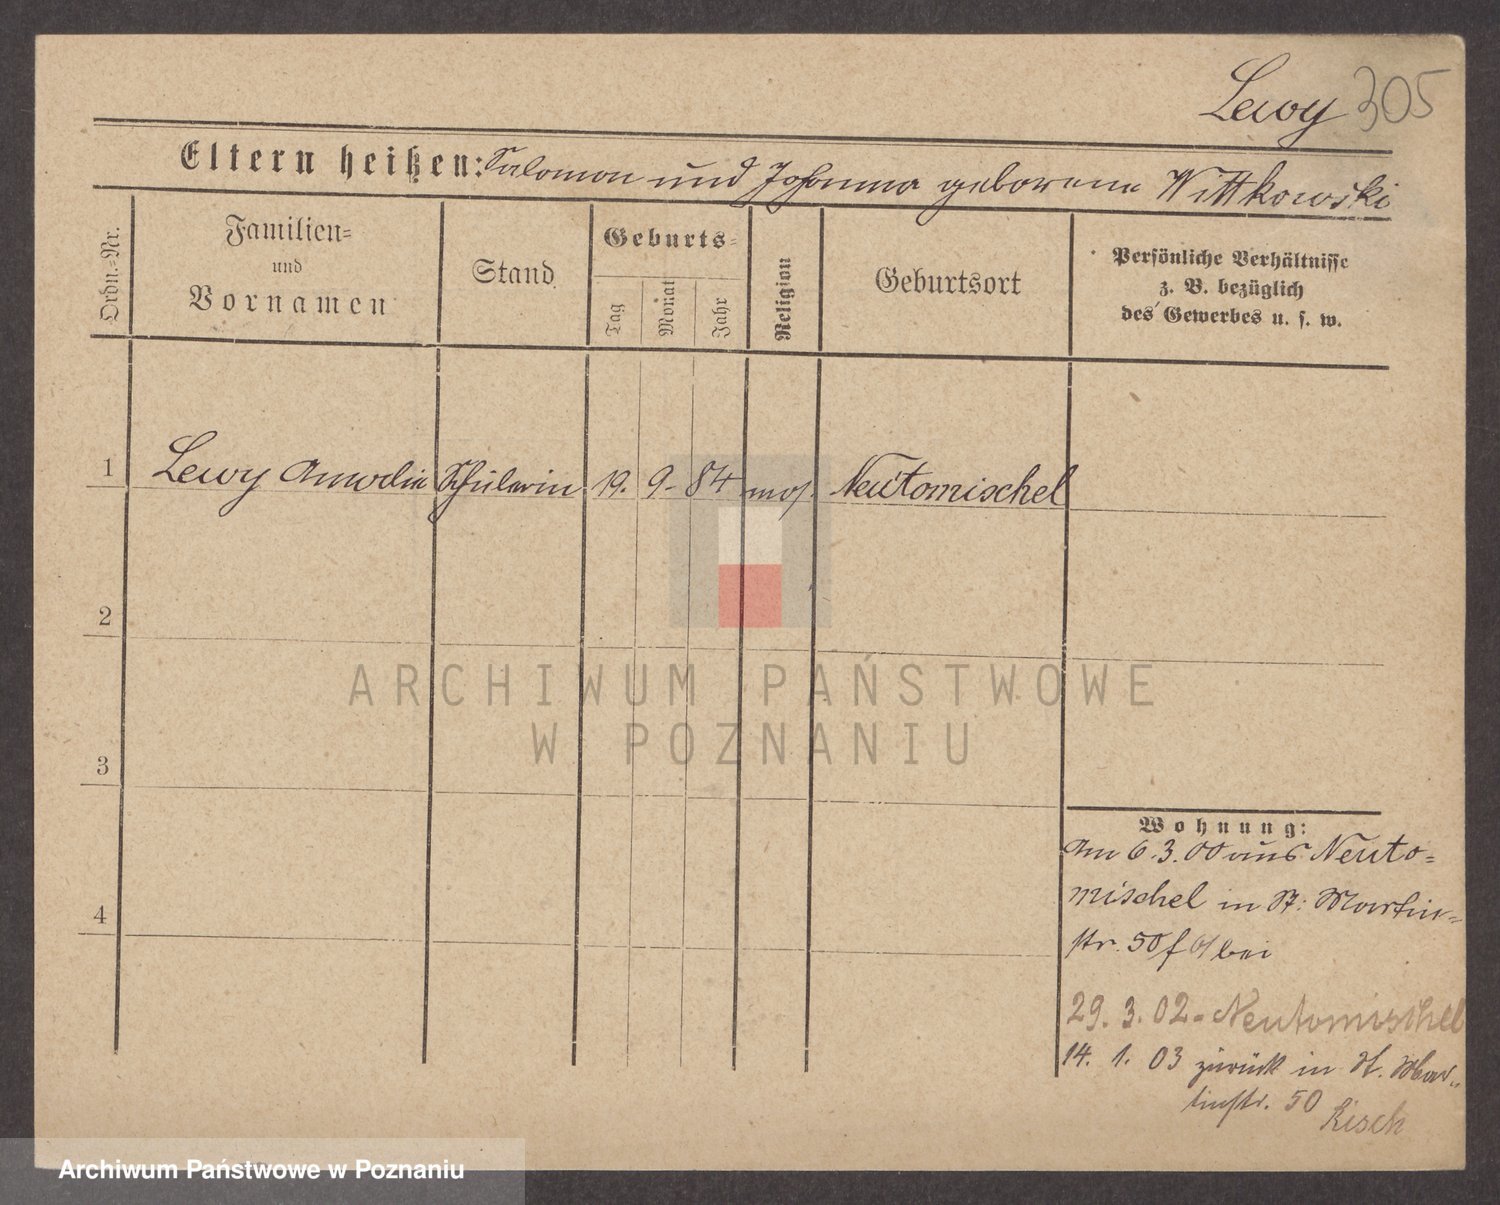 Lewy 305
Eltern heißen: Salomon und Johanna geborene Wittkowski
Ordn.-Nr.
Familien-
und
Vornamen
Stand
Geburts-
Tag
Monat
Jahr
Religion
Geburtsort
Persönliche Verhältnisse
z. B. bezüglich
des Gewerbes u. s. w.
1 Lewy Schülerin 19. 9. 84 mos. Neutomischel
2
3
4
Wohnung:
Am 6.3.00 aus Neuto=
mischel in St. Martin=
str. 50 bei
29. 3. 02. Neutomischel
14. 1. 03 zurück in St. Mar=
tinstr. 50
ARCHIWUM PAŃSTWOWE
W POZNANIU
Archiwum Państwowe w Poznaniu